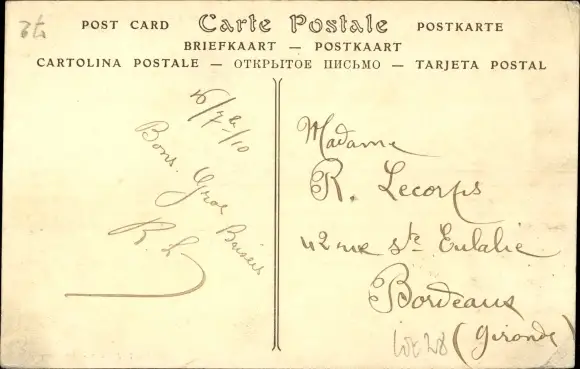 POST CARD Carte Postale POSTKARTE
BRIEFKAART — POSTKAART
CARTOLINA POSTALE — ОТКРЫТОЕ ПИСЬМО — TARJETA POSTAL
Bons Gros Baisers
R. L
Madame
R. Lecorps
42 rue Ste Eulalie
Bordeaux
(Gironde)